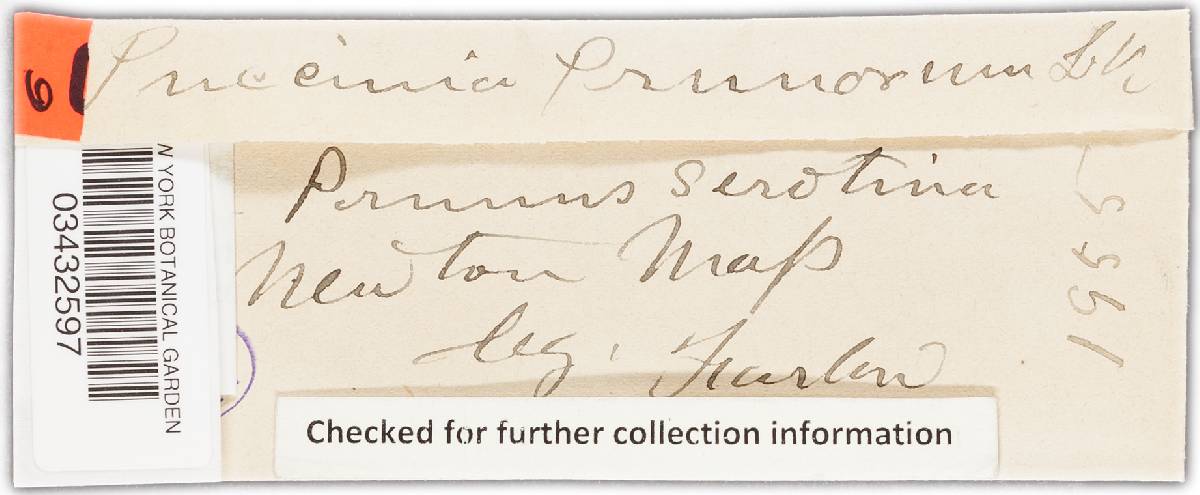 6
Puccinia Prunorum Lk
Prunus serotina
Newton Maſs
leg. Farlow
N YORK BOTANICAL GARDEN
03432597
Checked for further collection information